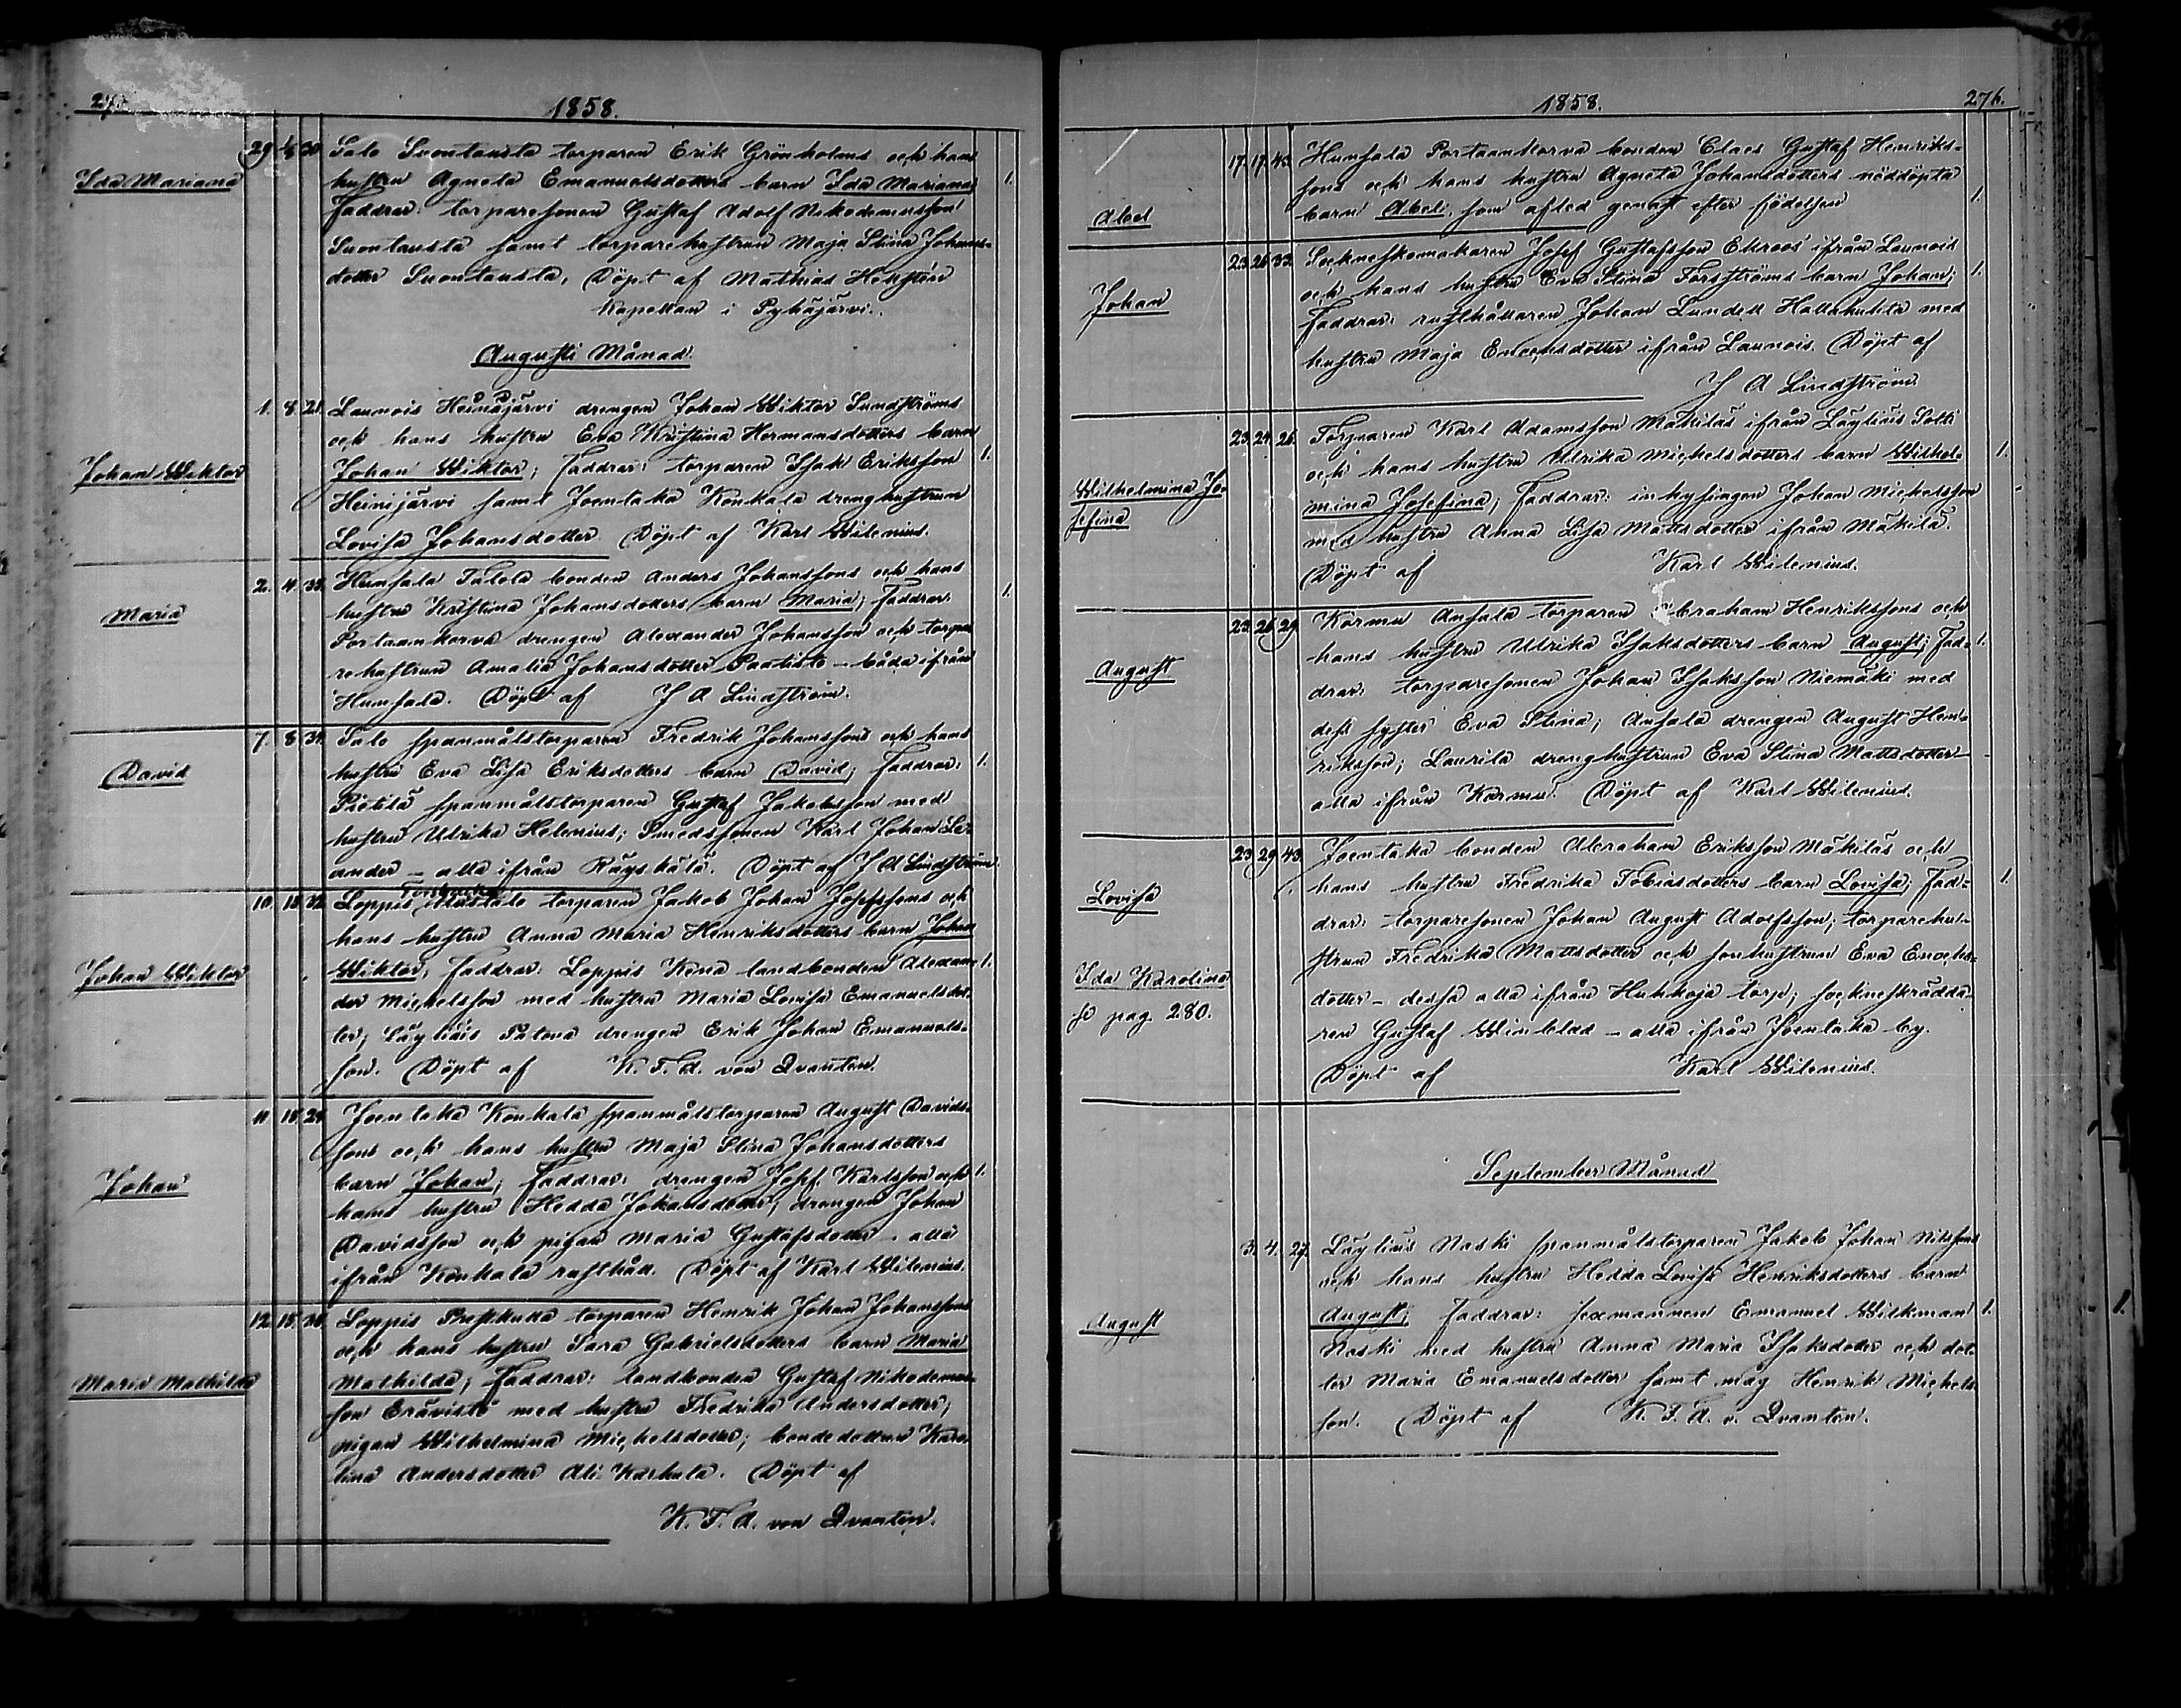 1858.
Ida Mariana
29. 1/8 30. Salo Suontausta torparen Erik Grönholms och hans
hustru Agneta Emanuelsdotters barn Ida Mariana; 1.
Faddrar: torparesonen Gustaf Adolf Nikodemusson
Suontausta samt torparehustrun Maja Stina Johans-
dotter Suontausta, Döpt af Mathias
Kapellan i Pyhäjärvi.
Augusti Månad.
Johan Wiktor
1. 8. 21. Launois Heinäjärvi drengen Johan Wiktor Sundströms
och hans hustru Eva Kristina Hermansdotters barn
Johan Wiktor; Faddrar: torparen Isak Eriksson 1.
Heinijärvi samt Joentaka Konkala drenghustrun
Lovisa Johansdotter Döpt af Karl Wilenius.
Maria
2. 4. 33. Hunsala Talola bonden Anders Johanssons och hans
hustru Kristina Johansdotters barn Maria; Faddrar: 1.
Portaankorva drengen Alexander Johansson och torpa-
rehustrun Amalia Johansdotter Paatisto – båda ifrån
Hunsala. Döpt af J A Lindström.
David
7. 8. 34. Salo spanmålstorparen Fredrik Johanssons och hans
hustru Eva Lisa Eriksdotters barn David; Faddrar: 1.
Pietilä spanmålstorparen Gustaf Jakobsson med
hustru Ulrika Helenius; Smedssonen Karl Johan Le-
ander – alla ifrån Räyskälä. Döpt af J A Lindström.
Johan Wiktor
10. 15. 32. Loppis torparen Jakob Johan Josefssons och
hans hustru Anna Maria Henriksdotters barn Johan
Wiktor; Faddrar: Loppis Kena landbonden Alexan- 1.
der Michelsson med hustru Maria Lovisa Emanuelsdot-
ter; Läyliäis Patova drengen Erik Johan Emanuels-
son. Döpt af K. F. A. von Qvanten.
Johan
11. 15. 24. Joentaka Konkala spanmålstorparen August Davids-
sons och hans hustru Maja Stina Johansdotters
barn Johan; Faddrar: drengen Josef Karlsson och 1.
hans hustru Hedda Johansdotter; drengen Johan
Davidsson och pigan Maria Gustafsdotter – alla
ifrån Konkala rusthåll. Döpt af Karl Wilenius.
Maria Mathilda
12. 15. 30. Loppis torparen Henrik Johan Johanssons
och hans hustru Sara Gabrielsdotters barn Maria
Mathilda; Faddrar: landbonden Gustaf Nikodemus-
son Erävistö med hustru Fredrika Andersdotter;
pigan Wilhelmina Michelsdotter; bondedottren Karo-
lina Andersdotter Ali Karhula. Döpt af
K. F. A. von Qvanten.
1858. 276.
Abel
17. 17. 43. Hunsala Portaankorva bonden Claes Gustaf Henriks-
sons och hans hustru Agneta Johansdotters nöddöpta
barn Abel; som afled genast efter födelsen 1.
Johan
23. 26. 33. Sockneskomakaren Josef Gustafsson Ekroos ifrån Launois
och hans hustru Eva Stina Forsströms barn Johan; 1.
Faddrar: rusthållaren Johan Lundell Hallakulita med
hustru Maja Enocksdotter ifrån Launois. Döpt af
J A Lindström
Wilhelmina Jo-
sefina
23. 24. 26. Torparen Karl Adamsson Mäkiläs ifrån Läyliäis Solti
och hans hustru Ulrika Michelsdotters barn Wilhel- 1.
mina Josefina; Faddrar: inhysingen Johan Michelsson
med hustru Anna Lisa Mattsdotter ifrån Mäkilä.
Döpt af Karl Wilenius.
August
23. 26. 29. Kormu Ansala torparen Abraham Henrikssons och
hans hustru Ulrika Isaksdotters barn August; Fad- 1.
drar: torparesonen Johan Isaksson Niemäki med
dess syster Eva Stina; Ansala drengen August Hen-
riksson; Laurila drenghustrun Eva Stina Mattsdotter –
alla ifrån Kormu. Döpt af Karl Wilenius.
Lovisa
23. 29. 43. Joentaka bonden Abraham Eriksson Mäkiläs och
hans hustru Fredrika Tobiasdotters barn Lovisa; Fad- 1.
drar: torparesonen Johan August Adolfsson; torparehu-
strun Fredrika Mattsdotter och sonhustrun Eva Enochs-
dotter – dessa alla ifrån Huhkoja torp; sockneskrädda-
ren Gustaf Winblad – alla ifrån Joentaka by.
Döpt af Karl Wilenius.
Ida Karolina
se pag. 280.
September Månad
August
3. 4. 27. Läyliäis Naski spanmålstorparen Jakob Johan Nilssons
och hans hustru Hedda Lovisa Henriksdotters barn
August; Faddrar: sexmannen Emanuel Wilkman 1.
Naski med hustru Anna Maria Isaksdotter och dot-
ter Maria Emanuelsdotter samt måg Henrik Michels-
son. Döpt af K. F. A. v. Qvanten.
1.